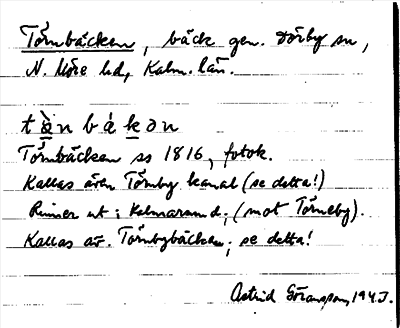 Törnbäcken, bäck gen. Dörby sn,
N. Möre hd, Kalm. län.
tὰ̀n bákən
Törnbäcken ss 1816, fotok.
Kallas även Törnby kanal (se detta!)
Rinner ut i Kalmarsund; (mot Törneby).
Kallas äv. Törnbybäcken; se detta!
Astrid Göransson, 1943.